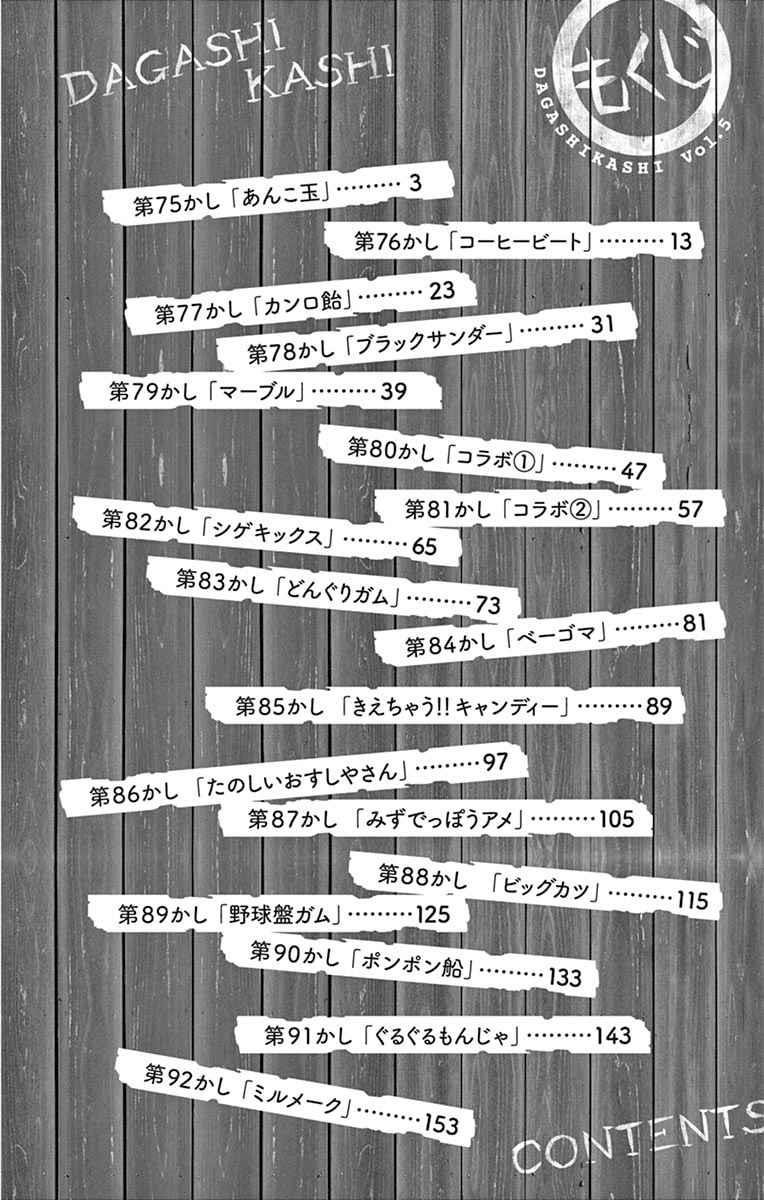 DAGASHI
KASHI
もくじ
DAGASHIKASHI Vol.5
第75かし「あんこ玉」………3
第76かし「コーヒービート」………13
第77かし「カンロ飴」………23
第78かし「ブラックサンダー」………31
第79かし「マーブル」………39
第80かし「コラボ①」………47
第81かし「コラボ②」………57
第82かし「シゲキックス」………65
第83かし「どんぐりガム」………73
第84かし「ベーゴマ」………81
第85かし「きえちゃう!!キャンディー」………89
第86かし「たのしいおすしやさん」………97
第87かし「みずでっぽうアメ」………105
第88かし「ビッグカツ」………115
第89かし「野球盤ガム」………125
第90かし「ポンポン船」………133
第91かし「ぐるぐるもんじゃ」………143
第92かし「ミルメーク」………153
CONTENTS